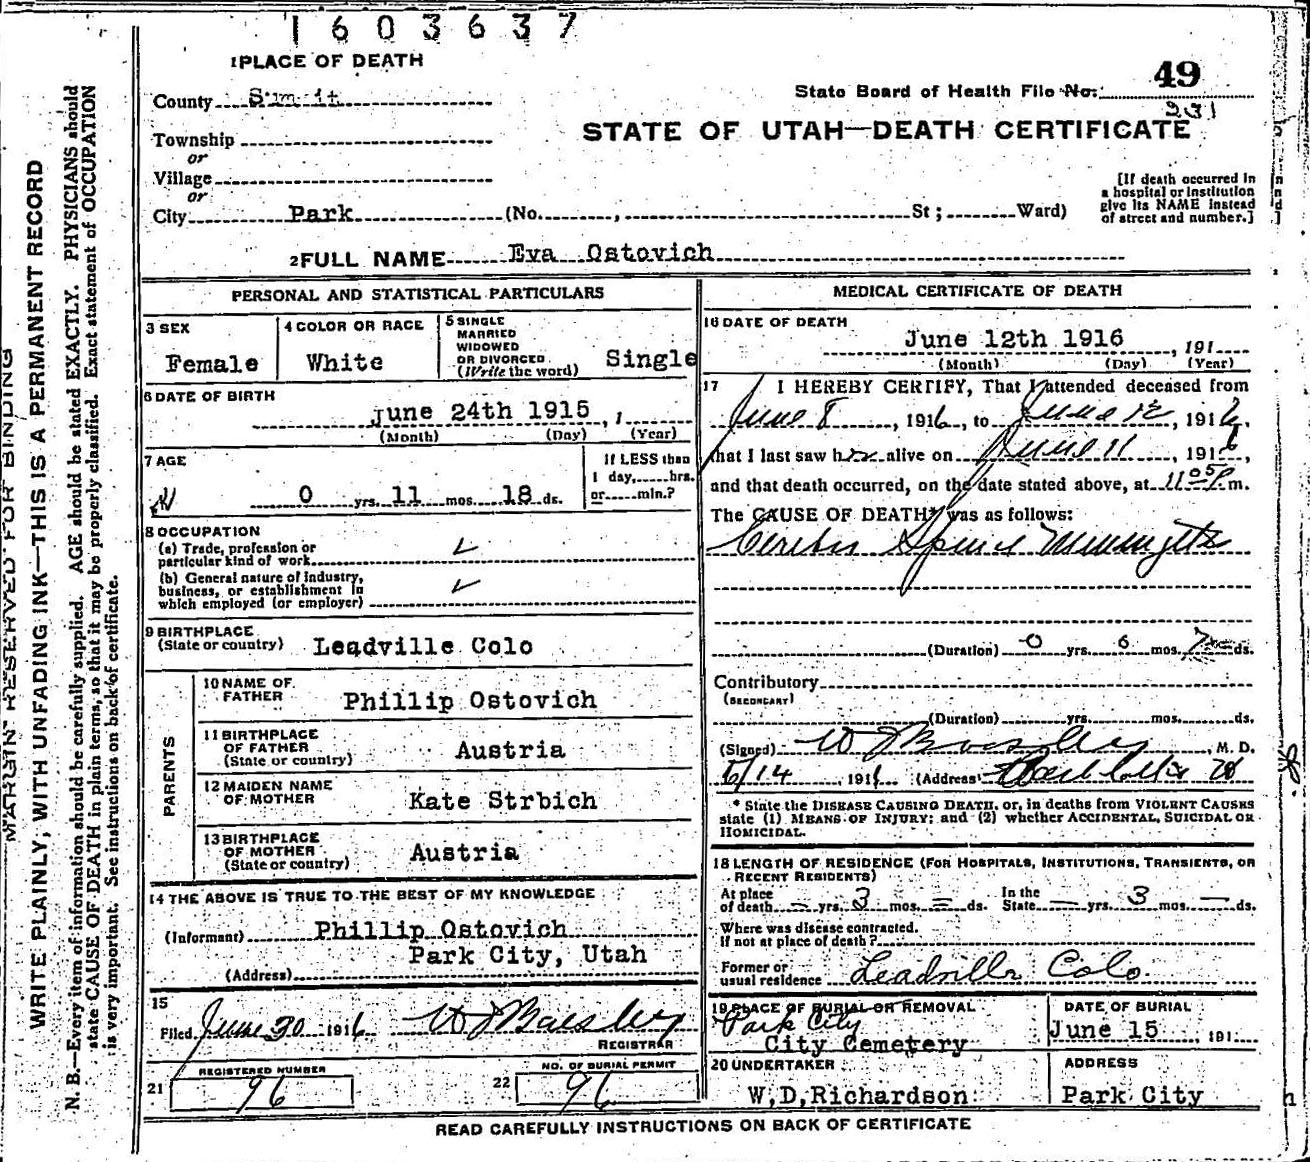 1603637
1 PLACE OF DEATH
49
County Summit
State Board of Health File No.
231
Township
STATE OF UTAH—DEATH CERTIFICATE
or
Village
or
City Park (No. , St ; Ward)
[If death occurred in
a hospital or institution
give its NAME instead
of street and number.]
2 FULL NAME Eva Ostovich
PERSONAL AND STATISTICAL PARTICULARS
3 SEX
Female
4 COLOR OR RACE
White
5 SINGLE
MARRIED
WIDOWED
OR DIVORCED
(Write the word)
Single
6 DATE OF BIRTH
June 24th 1915 , 1
(Month) (Day) (Year)
7 AGE
0 yrs. 11 mos. 18 ds.
If LESS than
1 day, hrs.
or min.?
8 OCCUPATION
(a) Trade, profession or
particular kind of work
(b) General nature of industry,
business, or establishment in
which employed (or employer)
9 BIRTHPLACE
(State or country) Leadville Colo
PARENTS
10 NAME OF
FATHER Phillip Ostovich
11 BIRTHPLACE
OF FATHER
(State or country) Austria
12 MAIDEN NAME
OF MOTHER Kate Strbich
13 BIRTHPLACE
OF MOTHER
(State or country) Austria
14 THE ABOVE IS TRUE TO THE BEST OF MY KNOWLEDGE
(Informant) Phillip Ostovich
Park City, Utah
(Address)
15
Filed June 30 1916
REGISTRAR
REGISTERED NUMBER
21 96
NO. OF BURIAL PERMIT
22 96
MEDICAL CERTIFICATE OF DEATH
16 DATE OF DEATH
June 12th 1916 , 191
(Month) (Day) (Year)
17 I HEREBY CERTIFY, That I attended deceased from
June 8 , 1916, to June 12 , 1916,
that I last saw her alive on June 11 , 1916,
and that death occurred, on the date stated above, at 11 05 P. m.
The CAUSE OF DEATH* was as follows:
Cerebro Spinal Meningitis
(Duration) 0 yrs. 6 mos. ds.
Contributory
(SECONDARY)
(Duration) yrs. mos. ds.
(Signed) , M. D.
6/14 , 1916 (Address)
* State the DISEASE CAUSING DEATH, or, in deaths from VIOLENT CAUSES
state (1) MEANS OF INJURY; and (2) whether ACCIDENTAL, SUICIDAL OR
HOMICIDAL.
18 LENGTH OF RESIDENCE (FOR HOSPITALS, INSTITUTIONS, TRANSIENTS, OR
RECENT RESIDENTS)
At place
of death — yrs. 3 mos. — ds.
In the
State — yrs. 3 mos. — ds.
Where was disease contracted,
If not at place of death?
Former or
usual residence Leadville Colo
19 PLACE OF BURIAL OR REMOVAL
Park City
City Cemetery
DATE OF BURIAL
June 15 , 191
20 UNDERTAKER
W,D,Richardson
ADDRESS
Park City
READ CAREFULLY INSTRUCTIONS ON BACK OF CERTIFICATE
MARGIN RESERVED FOR BINDING
WRITE PLAINLY, WITH UNFADING INK—THIS IS A PERMANENT RECORD
N. B.—Every item of information should be carefully supplied. AGE should be stated EXACTLY. PHYSICIANS should
state CAUSE OF DEATH in plain terms, so that it may be properly classified. Exact statement of OCCUPATION
is very important. See instructions on back of certificate.